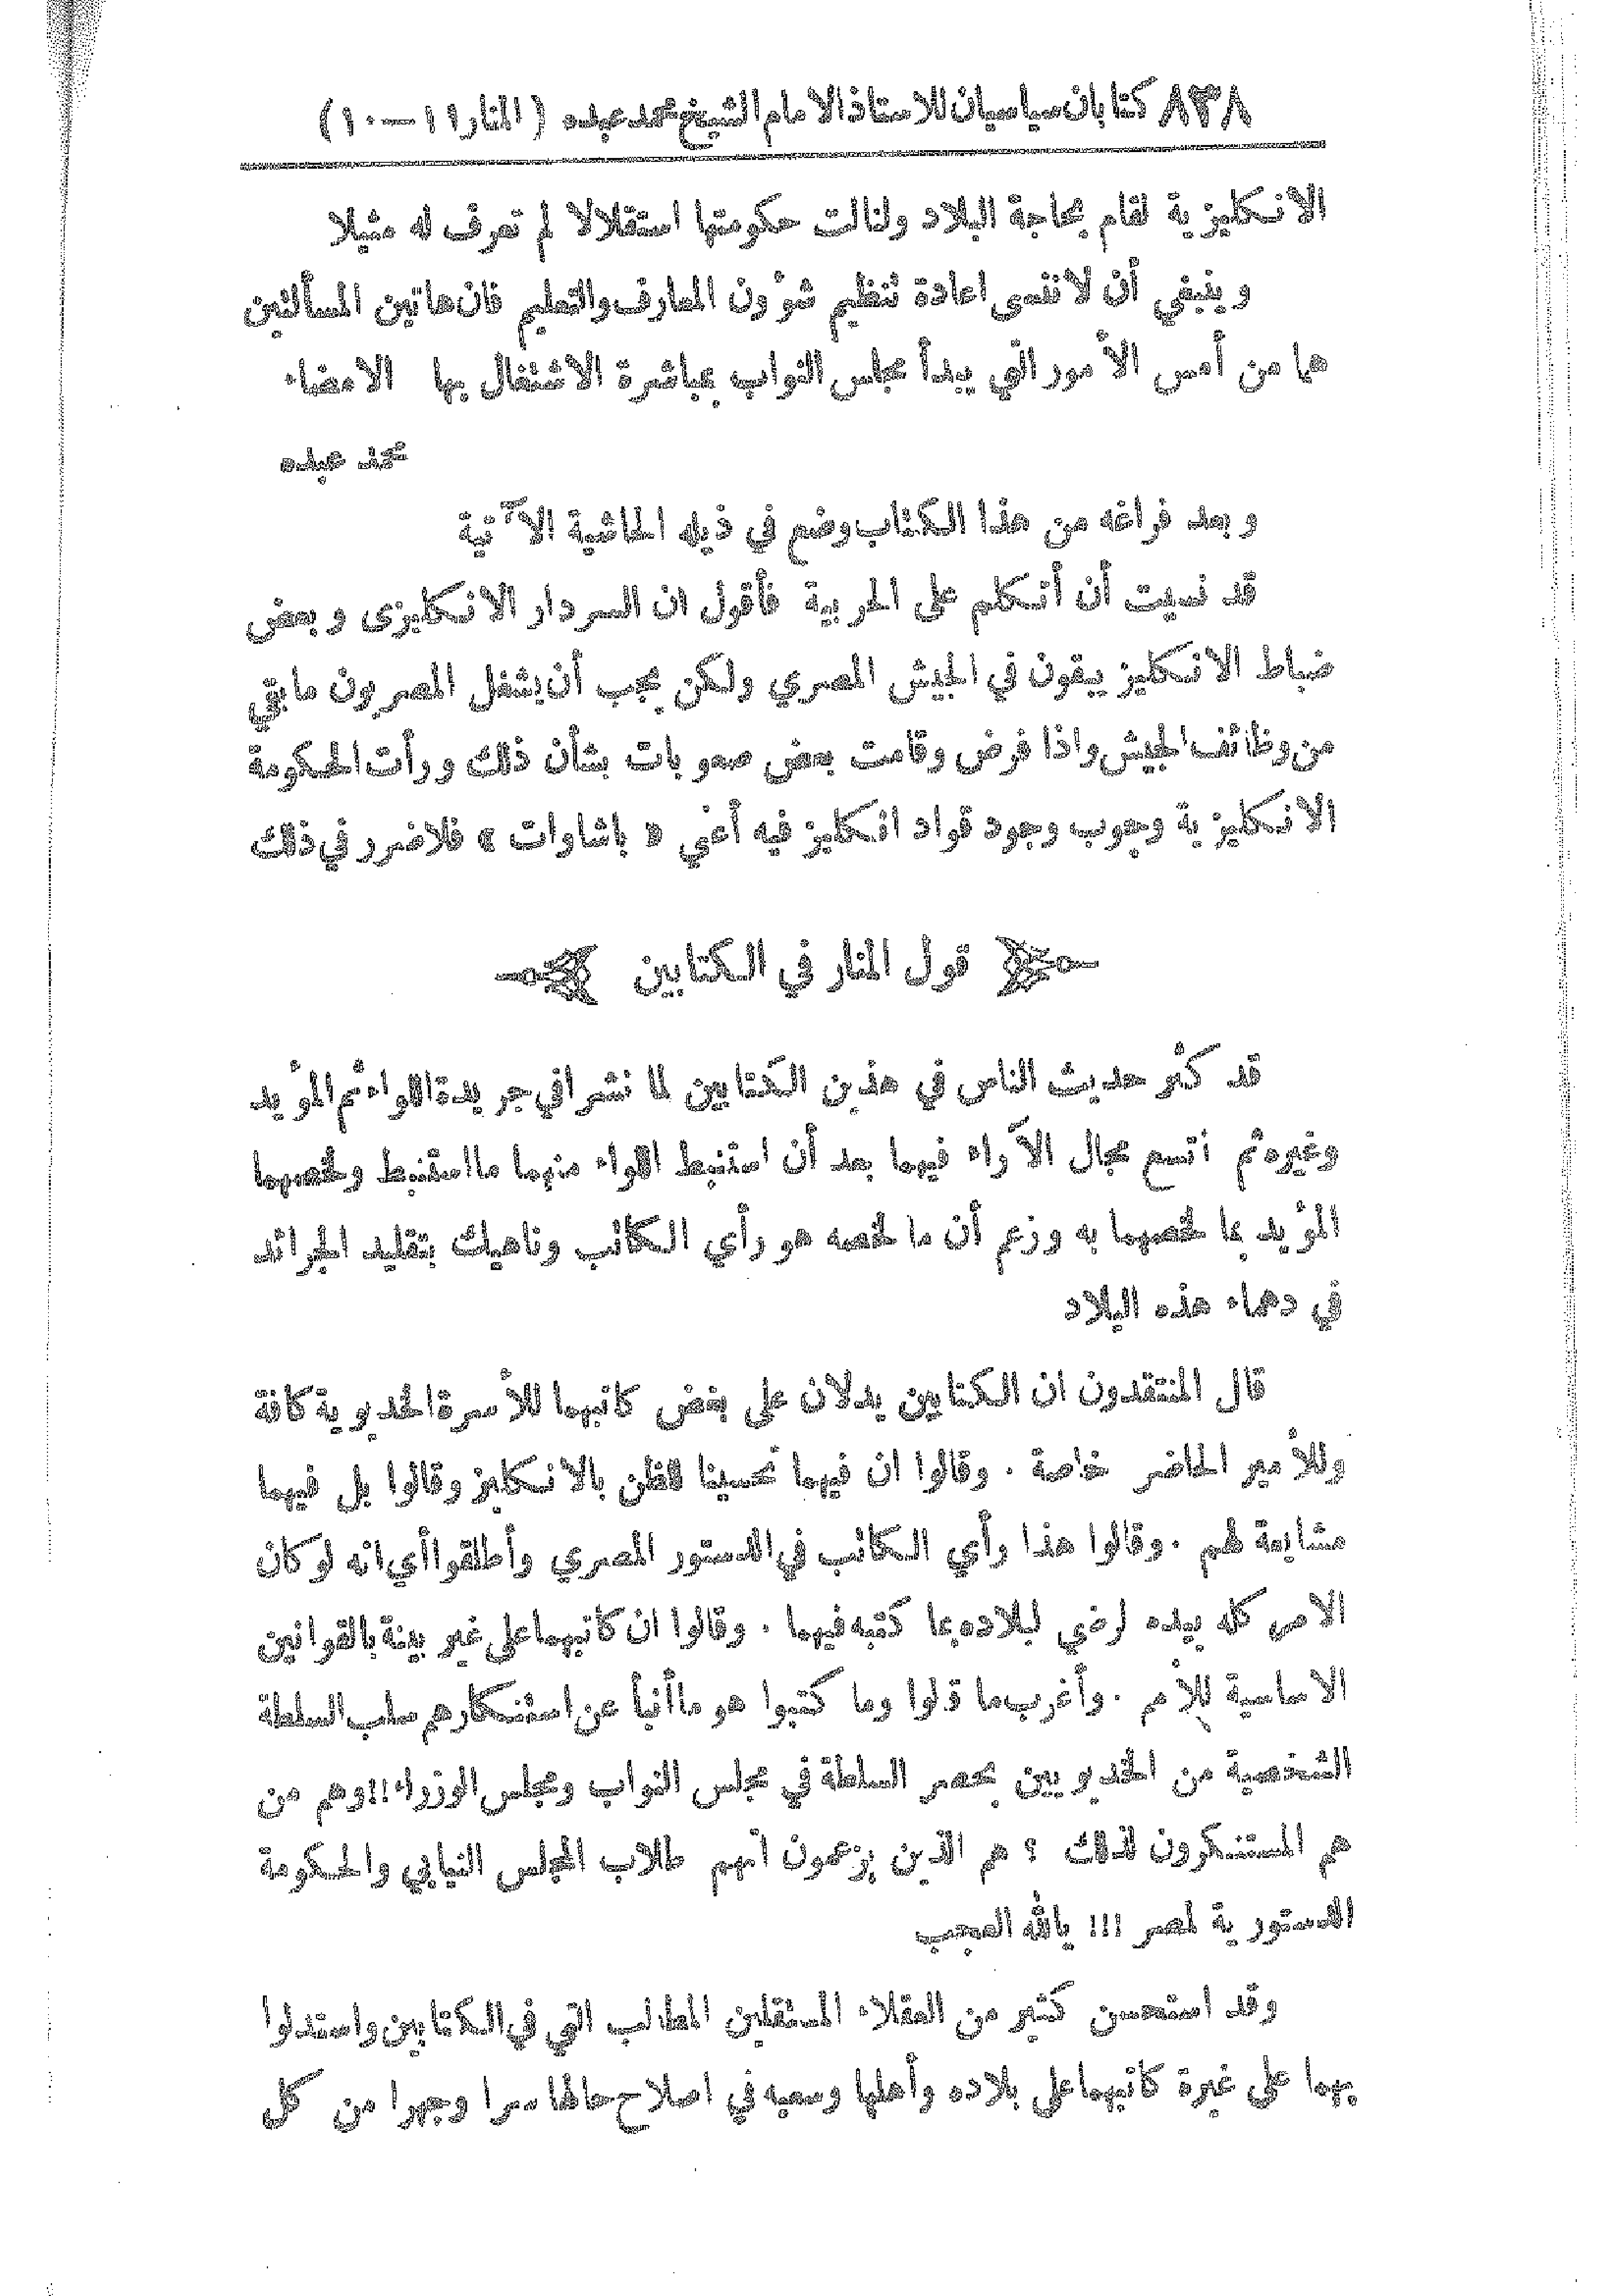 ٨٣٨ كتابان سياسيان للاستاذ الامام الشيخ محمد عبده (المنار ١١ — ١٠)
الانكليزية لقام بحاجة البلاد ولنالت حكومتها استقلالا لم تعرف له مثيلا
وينبغي أن لا ننسى اعادة تنظيم شؤون المعارف والتعليم فان هاتين المسألتين
هما من أمس الأمور التي يبدأ مجلس النواب بمباشرة الاشتغال بها الامضاء
محمد عبده
وبعد فراغه من هذا الكتاب وضع في ذيله الحاشية الآتية
قد نسيت أن أتكلم على الحربية فأقول ان السردار الانكليزى وبعض
ضباط الانكليز يبقون في الجيش المصري ولكن يجب أن يشغل المصريون ما بقي
من وظائف الجيش واذا فرض وقامت بعض صعوبات بشأن ذلك ورأت الحكومة
الانكليزية وجوب وجود قواد انكليز فيه أعني « باشاوات » فلا ضرر في ذلك
قول المنار في الكتابين
قد كثر حديث الناس في هذين الكتابين لما نشرا في جريدة اللواء ثم المؤيد
وغيره ثم اتسع مجال الآراء فيهما بعد أن استنبط اللواء منهما ما استنبط ولخصهما
المؤيد بما لخصهما به وزعم أن ما لخصه هو رأي الكاتب وناهيك بتقليد الجرائد
في دهماء هذه البلاد
قال المنتقدون ان الكتابين يدلان على بغض كاتبهما للأسرة الخديوية كافة
وللأمير الحاضر خاصة . وقالوا ان فيهما تحسينا للظن بالانكليز وقالوا بل فيهما
مشايعة لهم . وقالوا هذا رأي الكاتب في الدستور المصري وأطلقوا أي انه لو كان
الامر كله بيده لرضي لبلاده بما كتبه فيهما . وقالوا ان كاتبهما على غير بينة بالقوانين
الاساسية للأمم . وأغرب ما قالوا وما كتبوا هو ما أنبأ عن استنكارهم سلب السلطة
الشخصية من الخديويين بحصر السلطة في مجلس النواب ومجلس الوزراء!! وهم من
هم المستنكرون لذلك ؟ هم الذين يزعمون انهم طلاب المجلس النيابي والحكومة
الدستورية لمصر !!! يالله العجب
وقد استحسن كثير من العقلاء المستقلين المطالب التي في الكتابين واستدلوا
بهما على غيرة كاتبهما على بلاده وأهلها وسعيه في اصلاح حالها سرا وجهرا من كل